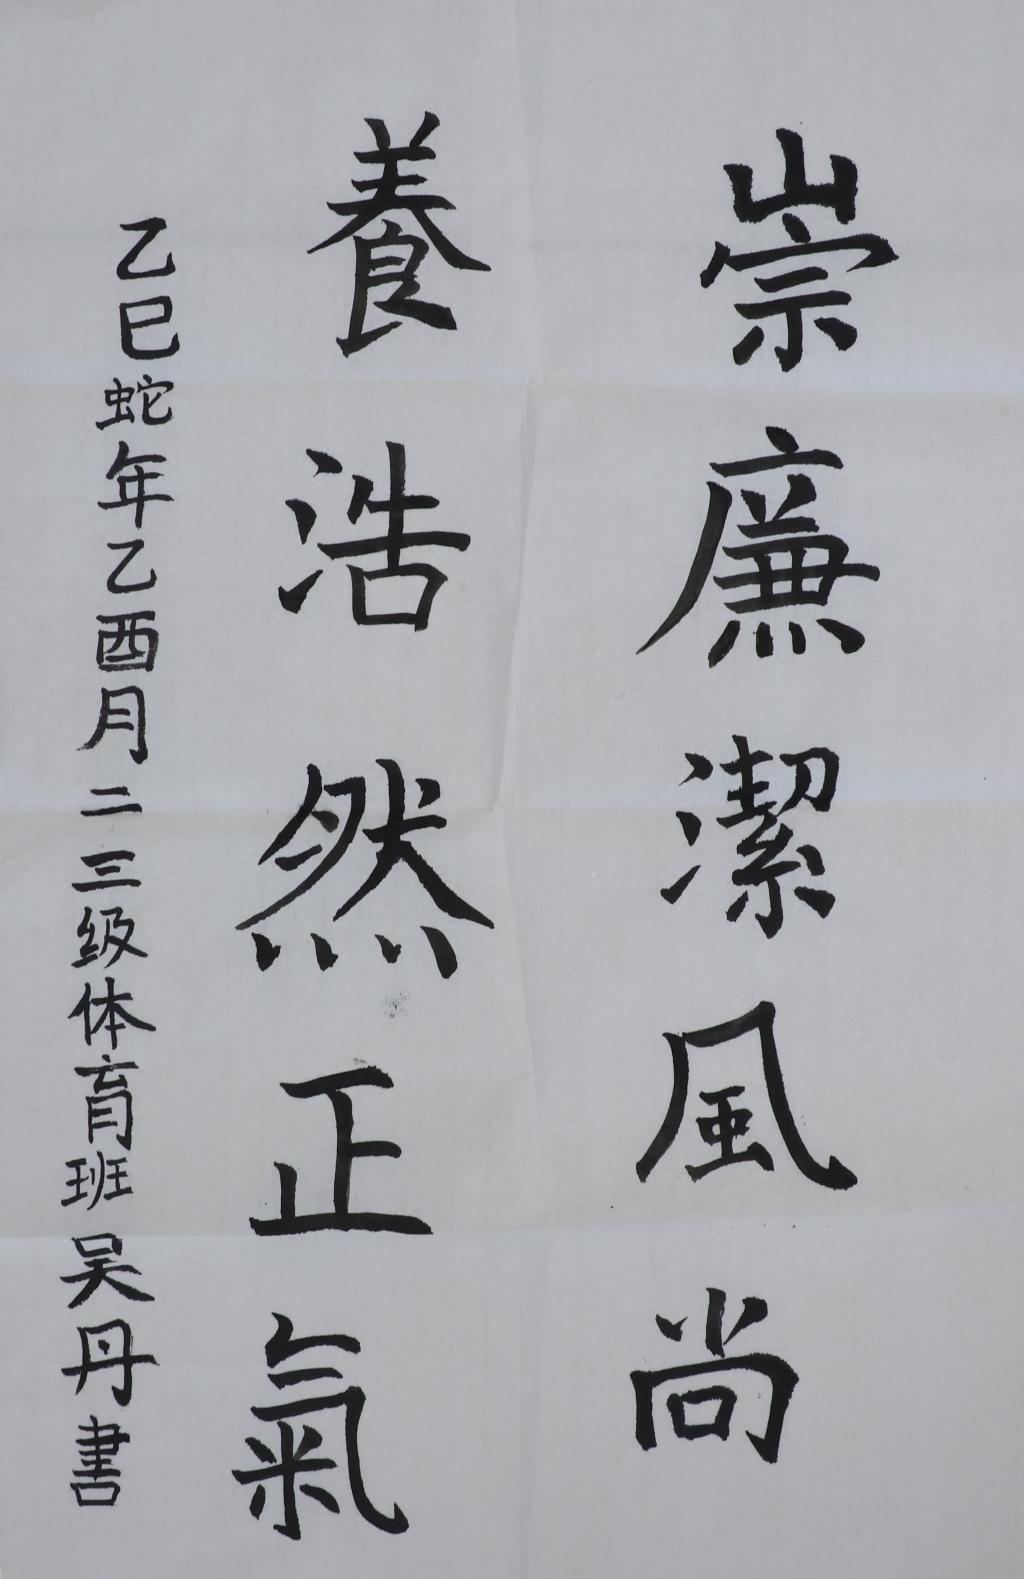 崇廉潔風尚
養浩然正氣
乙巳蛇年乙酉月二三级体育班吴丹書